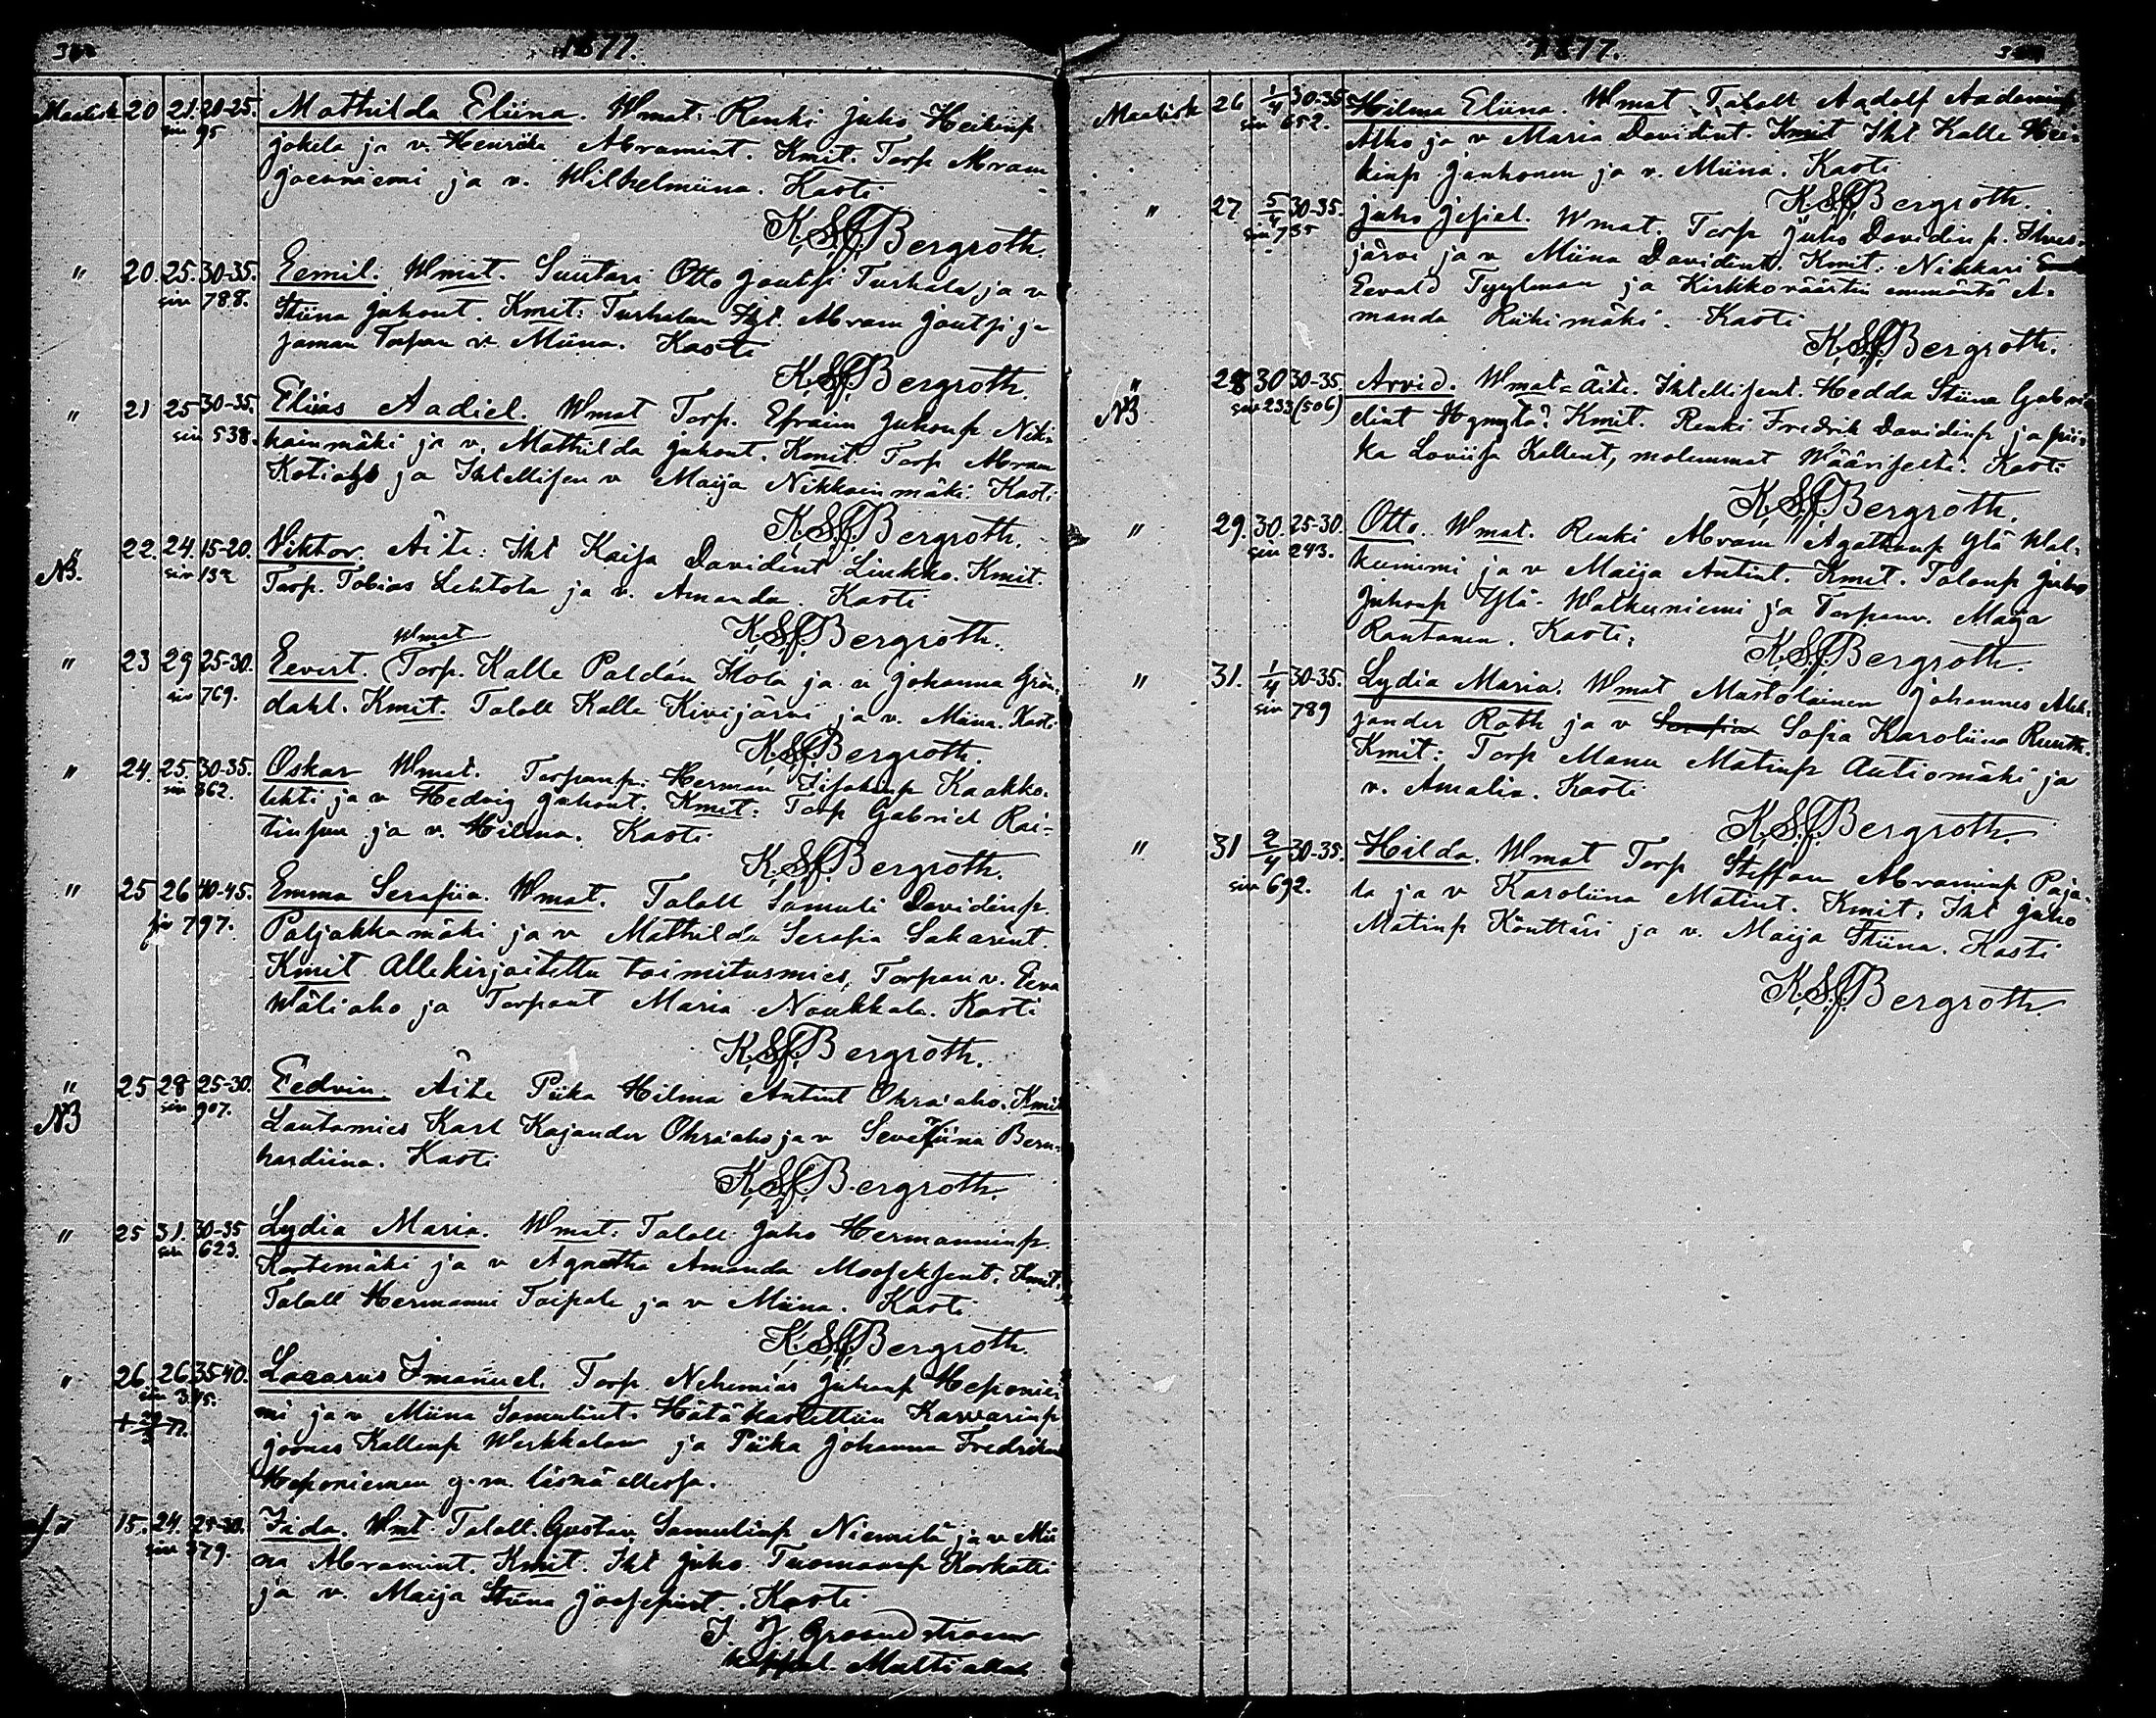 1877.
Maalisk 20 21. 20-25. Mathilda Eliina. Wmat. Renki Juho Heikinp
siv 95 jokela ja v. Henrika Abramint. Kmit. Torp Abram
Joenniemi ja v. Wilhelmiina. Kasti
K.S.J. Bergroth.
" 20. 25. 30-35. Eemil. Wmat. Suutari Otto Joutsi Turhala ja v
siv 788. Stiina Juhont. Kmit: Turhalan Iht. Abram Joutsi ja
saman Torpan v. Miina. Kasti
K.S.J. Bergroth.
" 21 25 30-35. Elias Aadiel. Wmat Torp. Efraim Juhonp Nik-
siv 538. kainmäki ja v. Mathilda Juhont. Kmit. Torp Abram
Kotiaho ja Ihtellisen v Maija Nikkainmäki. Kasti
K.S.J. Bergroth.
" 22. 24. 15-20. Viktor. Äite: Iht Kaisa Davidint Liukko. Kmit.
NB. siv 132 Torp. Tobias Lehtola ja v. Amanda. Kasti
K.S.J. Bergroth.
Wmat
" 23 29 25-30. Eevert. Torp. Kalle Paldán Hola ja v Johanna Grön-
siv 769. dahl. Kmit. Talall Kalle Kivijärvi ja v. Miina. Kasti
K.S.J. Bergroth.
" 24. 25. 30-35. Oskar Wmat. Torpanp. Herman Kaakko-
siv 362. lehti ja v Hedvig Juhont. Kmit: Torp Gabriel Rai-
tinpuu ja v. Hilma. Kasti
K.S.J. Bergroth.
" 25 26 40-45. Emma Serafiia. Wmat. Talall Samuli Davidinp.
siv 797. Paljakkamäki ja v Mathilda Serafia Sakarint.
Kmit Allekirjoitettu toimitusmies, Torpan v. Eeva
Wäliaho ja Torpant Maria Noukkala. Kasti
K.S.J. Bergroth.
" 25 28 25-30. Eedvin. Äite Piika Hilma Antint Ohra'aho. Kmit
NB siv 907. Lautamies Karl Kajander Ohra'aho ja v Severiina Bern-
hardiina. Kasti
K.S.J. Bergroth.
" 25 31. 30-35 Lydia Maria. Wmat. Talall Juho Hermanninp.
siv 623. Kortemäki ja v Agnetha Amanda Mooseksent. Kmit.
Talall Hermanni Taipale ja v Miina. Kasti
K.S.J. Bergroth.
" 26. 26 35-40. Lazarus Imanuel. Torp Nehemias Juhonp Heponie-
siv 345. mi ja v Miina Samulint. Hätäkastettiin Karvarinp
Joonas Kallenp Werkkalan ja Piika Johanna Fredrika
Heponiemen y. m. läsnä ollessa.
15. 24. 25-30. Iida. Wmt. Talall. Gustav Samulinp Niemelä ja v Mii
siv 379. na Abramint. Kmit. Iht Juho Tuomaanp Korkatti
ja v. Maija Stiina Josefint. Kasti
J. J. Grandstroem
kappal. Multialla
1877.
Maalisk 26 1/4 30-35 Hilma Eliina. Wmat Talall Aadolf Aadaminp
siv 652. Alho ja v Maria Davidint. Kmit Iht Kalle Hei-
kinp Jankonen ja v. Miina. Kasti
K.S.J. Bergroth.
" 27 5/4 30-35. Juho Jesial. Wmat. Torp Juho Davidinp. Ilves-
siv 735 järvi ja v Miina Davidint. Kmit: Nikkari
Eevald Tyylman ja Kirkkoväärtin emmäntä A-
manda Riikimäki. Kasti
K.S.J. Bergroth.
" 28 30 30-35. Arvid. Wmat= Äite. Ihtellisent. Hedda Stiina Gabrie
NB siv 233 (506) Kmit. Renki Fredrik Davidinp ja pii-
ka Loviisa Kallent, molemmat Väärisestä. Kasti
K.S.J. Bergroth.
" 29. 30. 25-30. Otto. Wmat. Renki Abram Agathanp Ylä Wal-
siv 243. keinimi ja v Maija Antint. Kmit. Talonp Juho
Juhonp Ylä-Walkeiniemi ja Torpanv. Maija
Rantanen. Kasti:
K.S.J. Bergroth.
" 31. 1/4 30-35. Lydia Maria. Wmat Mustolainen Johannes Alek-
siv 789 sander Roth ja v Serafia Sofia Karoliina Ruuth.
Kmit: Torp Manu Matinp Autiomäki ja
v. Amalia. Kasti
K.S.J. Bergroth.
" 31 2/4 30-35. Hilda. Wmat Torp Steffan Abraminp Paja-
siv 692. la ja v Karoliina Matint. Kmit: Iht Juho
Matinp Könttäri ja v. Maija Stiina. Kasti
K.S.J. Bergroth.